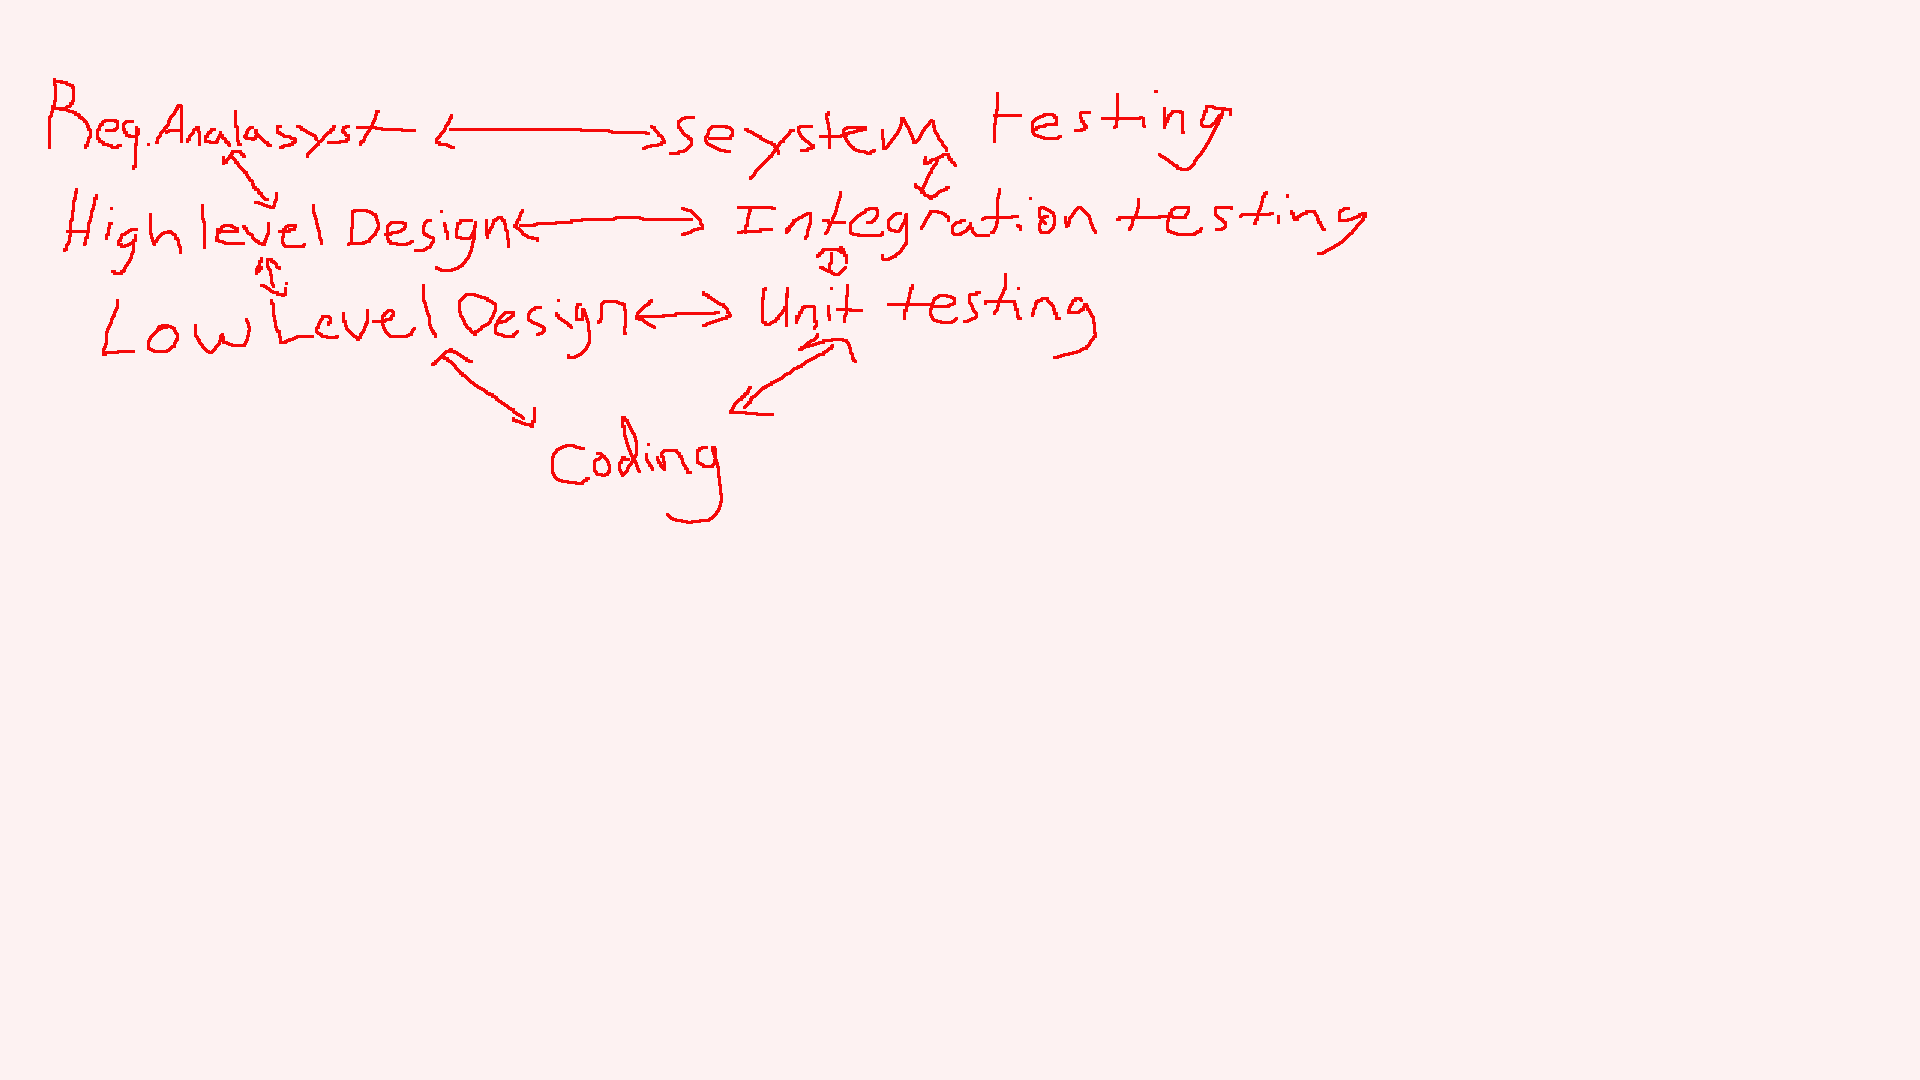 Req. Analasyst seystem testing
High level Design Integration testing
Low Level Design Unit testing
Coding